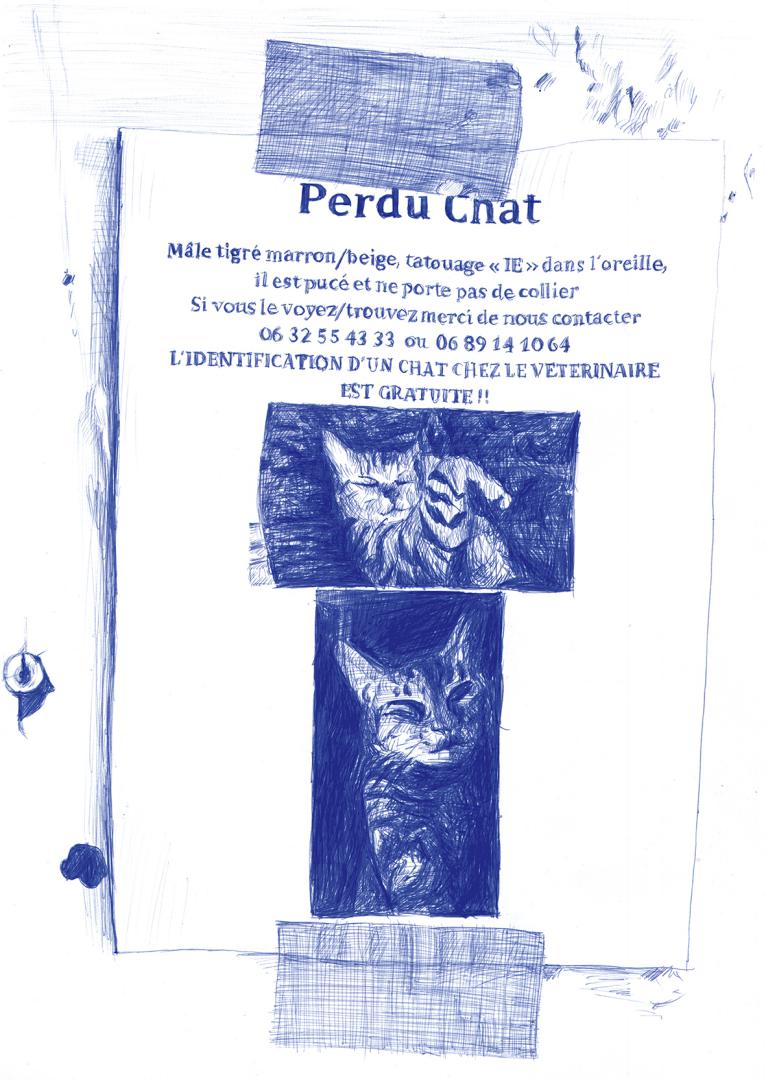 Perdu Chat
Mâle tigré marron/beige, tatouage « IE » dans l'oreille,
il est pucé et ne porte pas de collier
Si vous le voyez/trouvez merci de nous contacter
06 32 55 43 33 ou 06 89 14 10 64
L'IDENTIFICATION D'UN CHAT CHEZ LE VETERINAIRE
EST GRATUITE !!